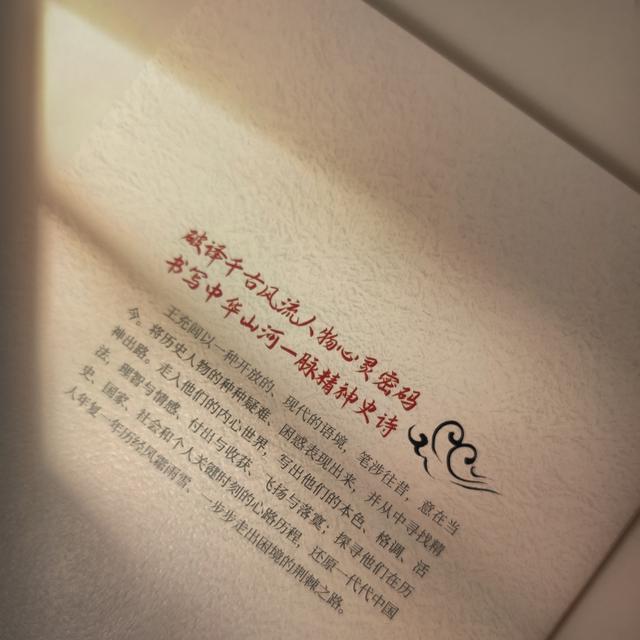 破译千古风流人物心灵密码
书写中华山河一脉精神史诗
王充闾以一种开放的、现代的语境，笔涉往昔，意在当
今。将历史人物的种种疑难、困惑表现出来，并从中寻找精
神出路。走入他们的内心世界，写出他们的本色、格调、活
法，理智与情感、付出与收获、飞扬与落寞；探寻他们在历
史、国家、社会和个人关键时刻的心路历程，还原一代代中国
人年复一年历经风霜雨雪、一步步走出困境的荆棘之路。